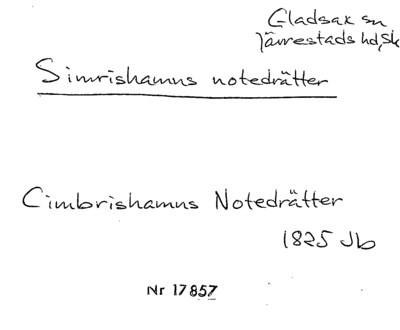 Gladsax sn
Järrestads hd, Sk
Simrishamns notedrätter
Cimbrishamns Notedrätter
1825 Jb
Nr 17857